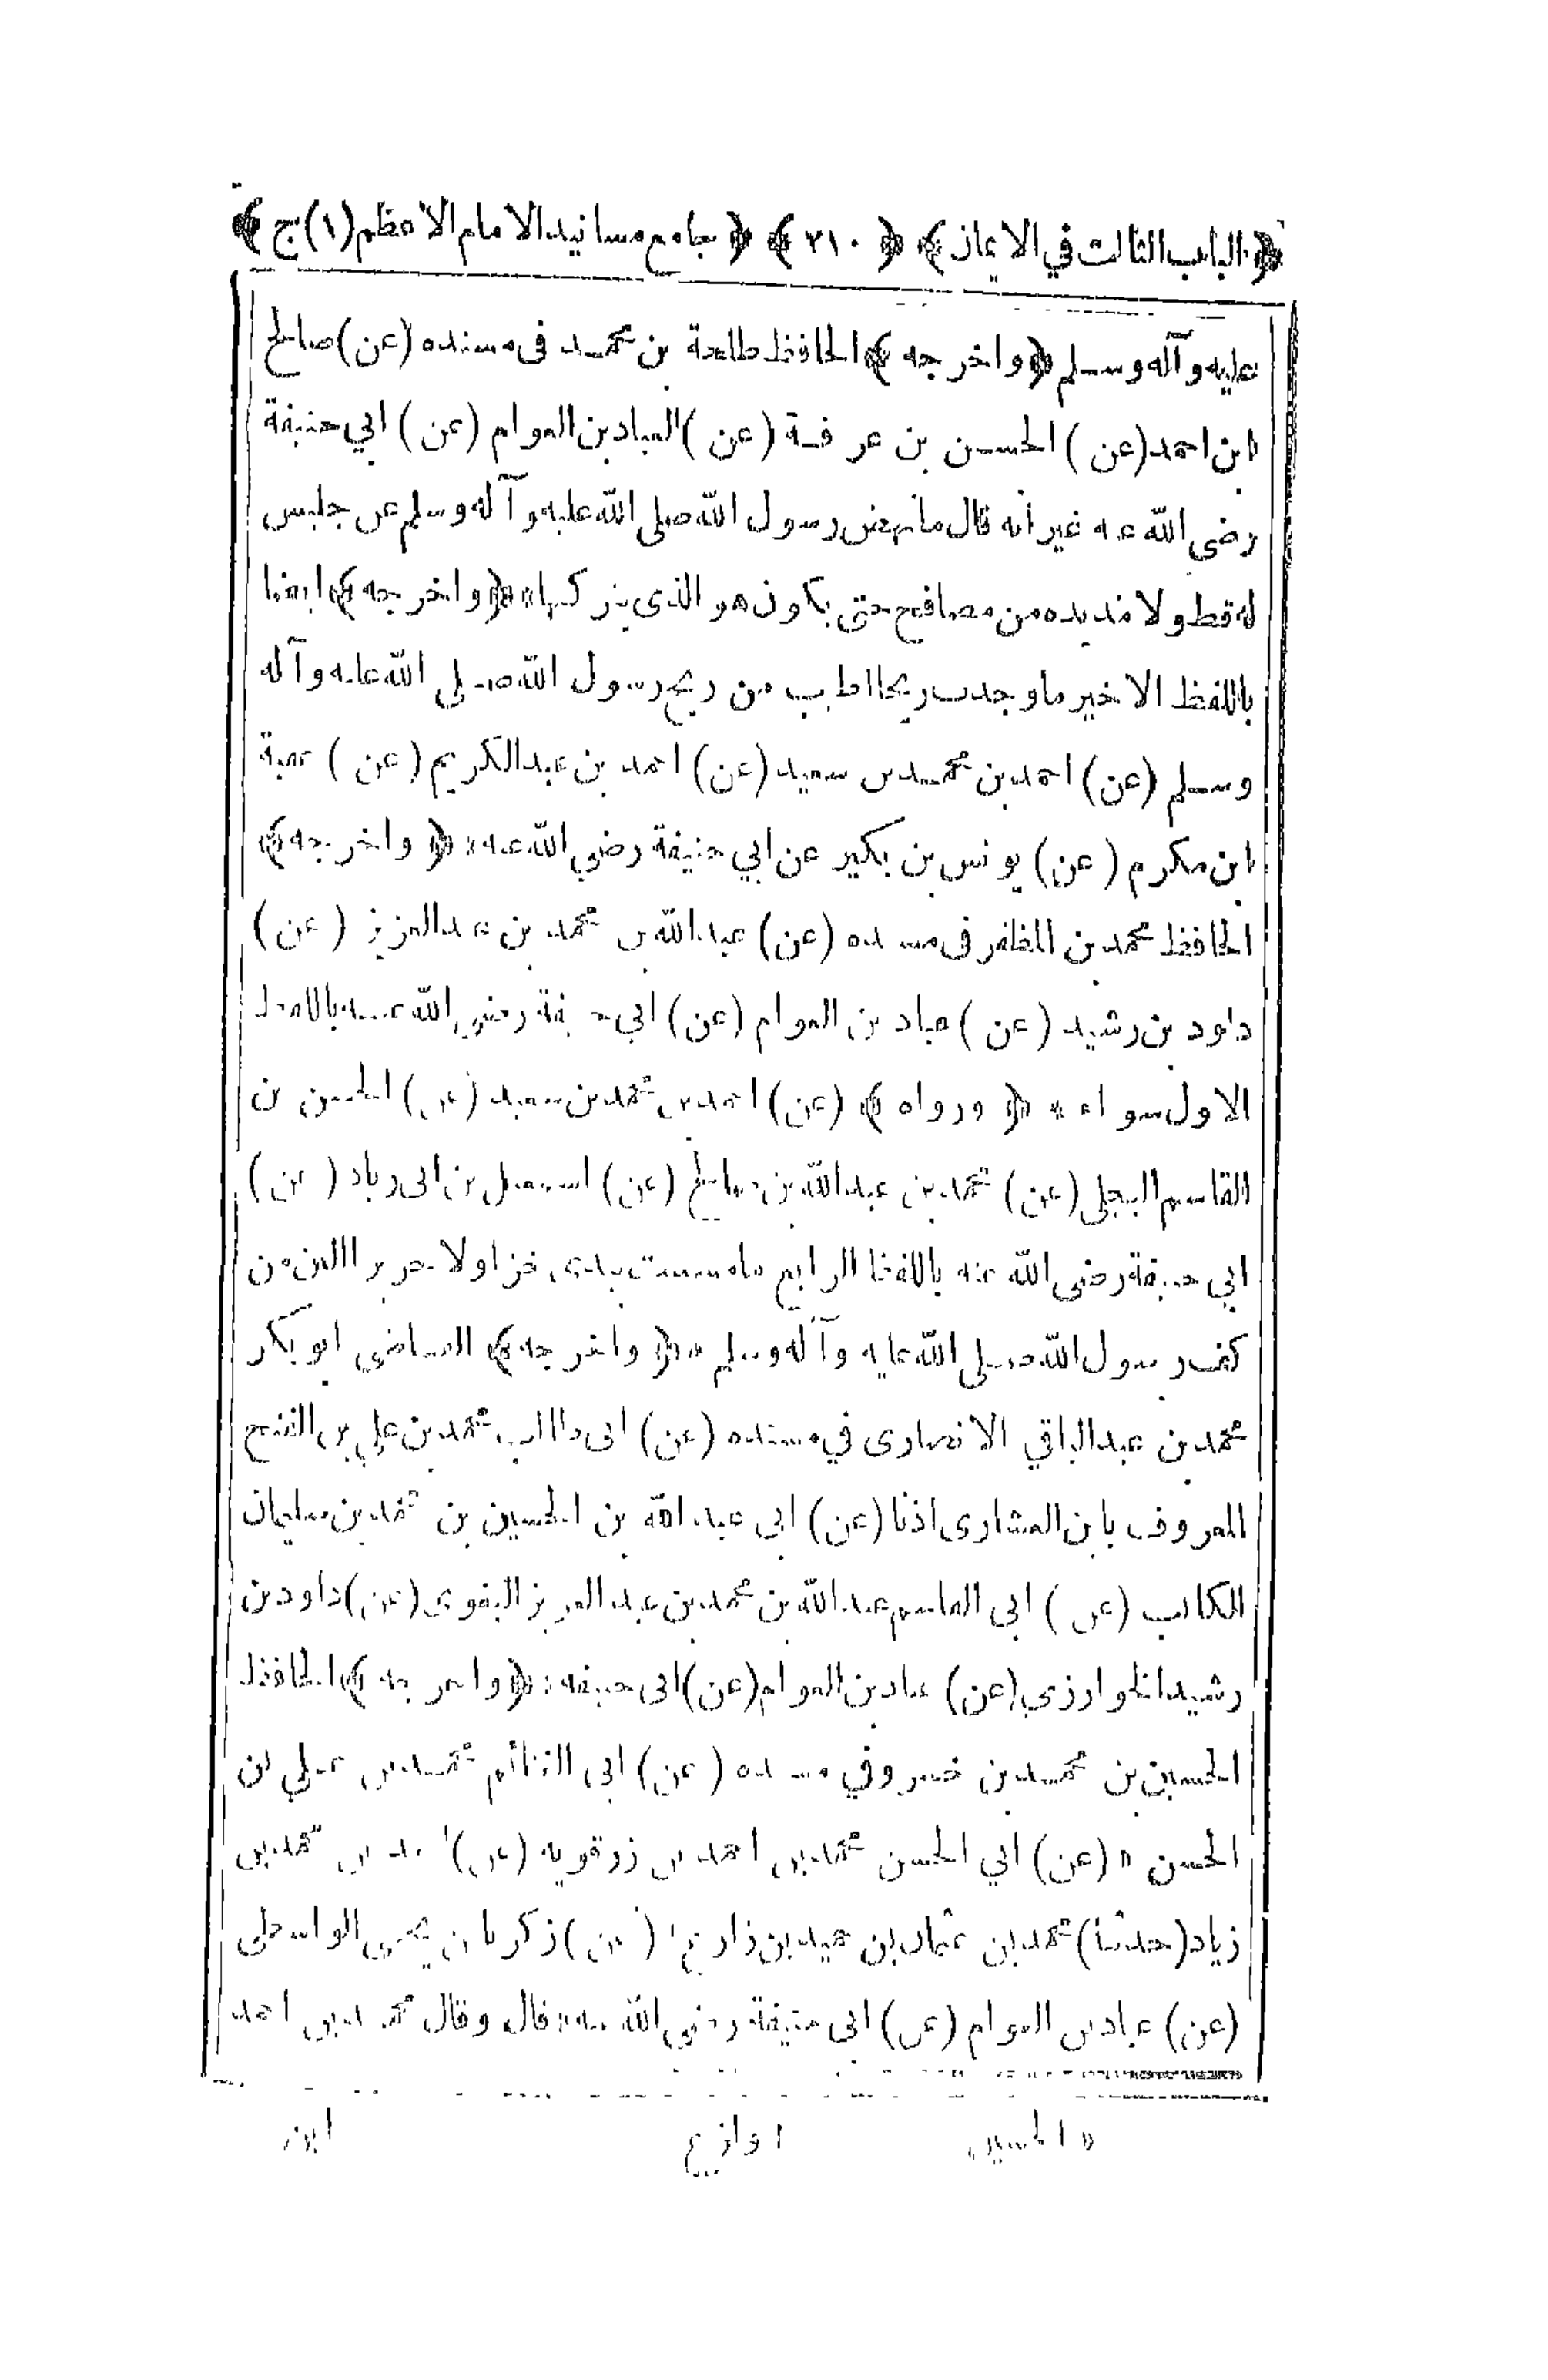 ﴿الباب الثالث في الايمان﴾ ﴿٢١٠﴾ ﴿جامع مسانيد الامام الاعظم (١) ج﴾
عليه وآله وسلم ﴿واخرجه﴾ الحافظ طلحة بن محمد فى مسنده (عن) صالح
ابن احمد (عن) الحسن بن عرفة (عن) العباد بن العوام (عن) ابي حنيفة
رضى الله عنه غير انه قال مانهض رسول الله صلى الله عليه وآله وسلم عن جليس
له قط ولا مد يده من مصافح حتى يكون هو الذى يتركها * ﴿واخرجه﴾ ايضا
باللفظ الاخير ما وجدت ريحا اطيب من ريح رسول الله صلى الله عليه وآله
وسلم (عن) احمد بن محمد بن سعيد (عن) احمد بن عبد الكريم (عن)
ابن مكرم (عن) يونس بن بكير عن ابي حنيفة رضي الله عنه * ﴿واخرجه﴾
الحافظ محمد بن المظفر فى مسنده (عن) عبد الله بن محمد بن عبد العزيز (عن)
داود بن رشيد (عن) عباد بن العوام (عن) ابي حنيفة رضي الله عنه باللفظ
الاول سواء * ﴿ورواه﴾ (عن) احمد بن محمد بن سعيد (عن) الحسن بن
القاسم البجلى (عن) محمد بن عبد الله بن صالح (عن) اسمعيل بن ابى زياد (عن)
ابي حنيفة رضى الله عنه باللفظ الرابع ما مسست بيدى خزا ولا حريرا الين من
كف رسول الله صلى الله عليه وآله وسلم * ﴿واخرجه﴾ القاضي ابو بكر
محمد بن عبد الباقي الانصارى في مسنده (عن) ابى طالب محمد بن علي بن الفتح
المعروف بابن العشارى اذنا (عن) ابى عبد الله بن الحسين بن محمد بن سليمان
الكاتب (عن) ابى القاسم عبد الله بن محمد بن عبد العزيز البغوى (عن) داود بن
رشيد الخوارزمي (عن) عباد بن العوام (عن) ابى حنيفة * ﴿واخرجه﴾ الحافظ
الحسين بن محمد بن خسرو في مسنده (عن) ابى الغنائم محمد بن علي بن
الحسن * (عن) ابي الحسن محمد بن احمد بن زرقويه (عن) بن محمد بن
زياد (حدثنا) محمد بن عثمان بن حميد بن زارع ١ (عن) زكريا بن يحيى الواسطى
(عن) عباد بن العوام (عن) ابى حنيفة رضي الله عنه * قال وقال محمد بن احمد
* الحسين ١ وازع ابن